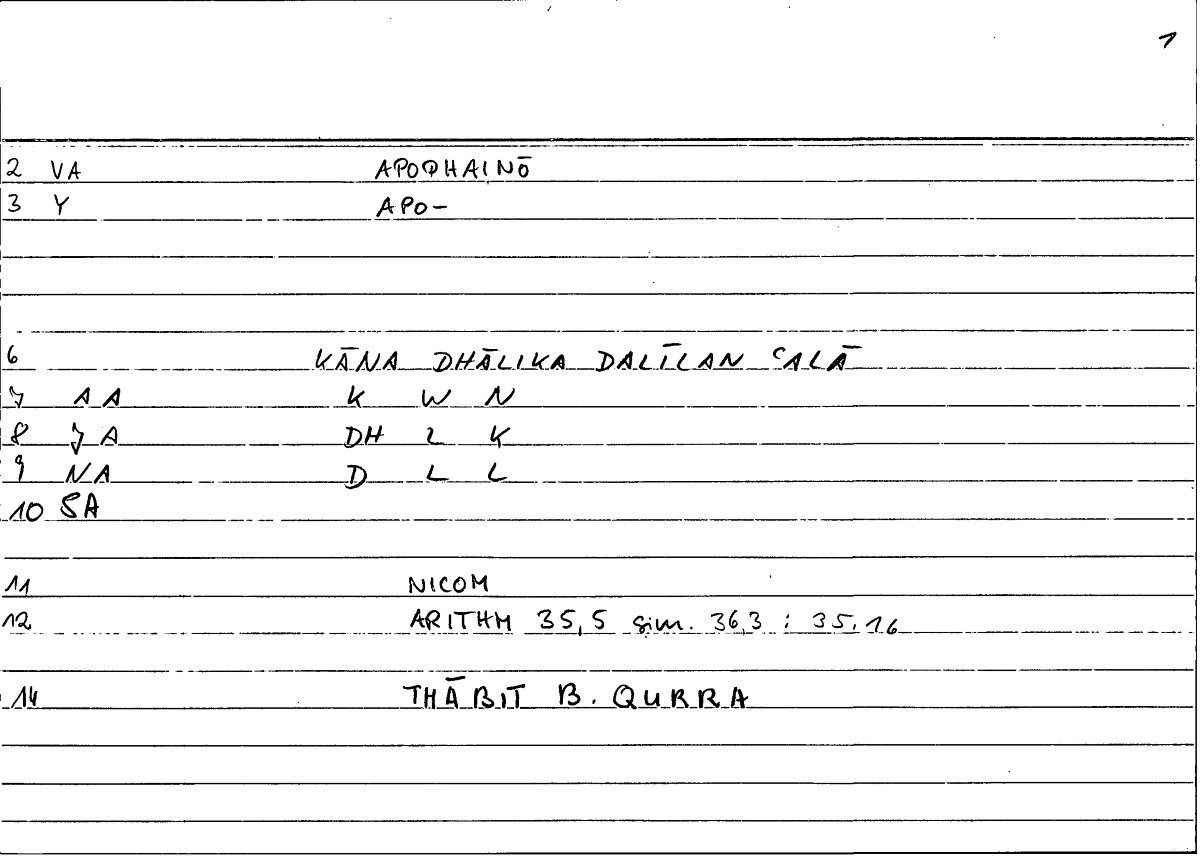 1
2 VA APOPHAINŌ
3 Y APO-
6 KĀNA DHĀLIKA DALĪLAN ʿALĀ
7 AA K W N
8 JA DH L K
9 NA D L L
10 SA
11 NICOM
12 ARITHM 35,5 sim. 36,3 ; 35,16
14 THĀBIT B. QURRA